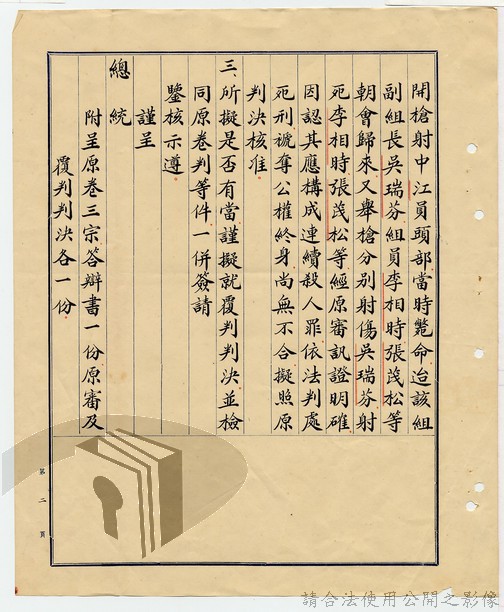 開槍射中江員頭部當時斃命迨該組
副組長吳瑞芬組員李相時張茂松等
朝會歸來又舉槍分別射傷吳瑞芬射
死李相時張茂松等經原審訊證明確
因認其應構成連續殺人罪依法判處
死刑褫奪公權終身尚無不合擬照原
判決核准
三、所擬是否有當謹擬就覆判判決並檢
同原卷判等件一併簽請
鑒核示遵
謹呈
總統
附呈原卷三宗答辯書一份原審及
覆判判決各一份
第二頁
請合法使用公開之影像